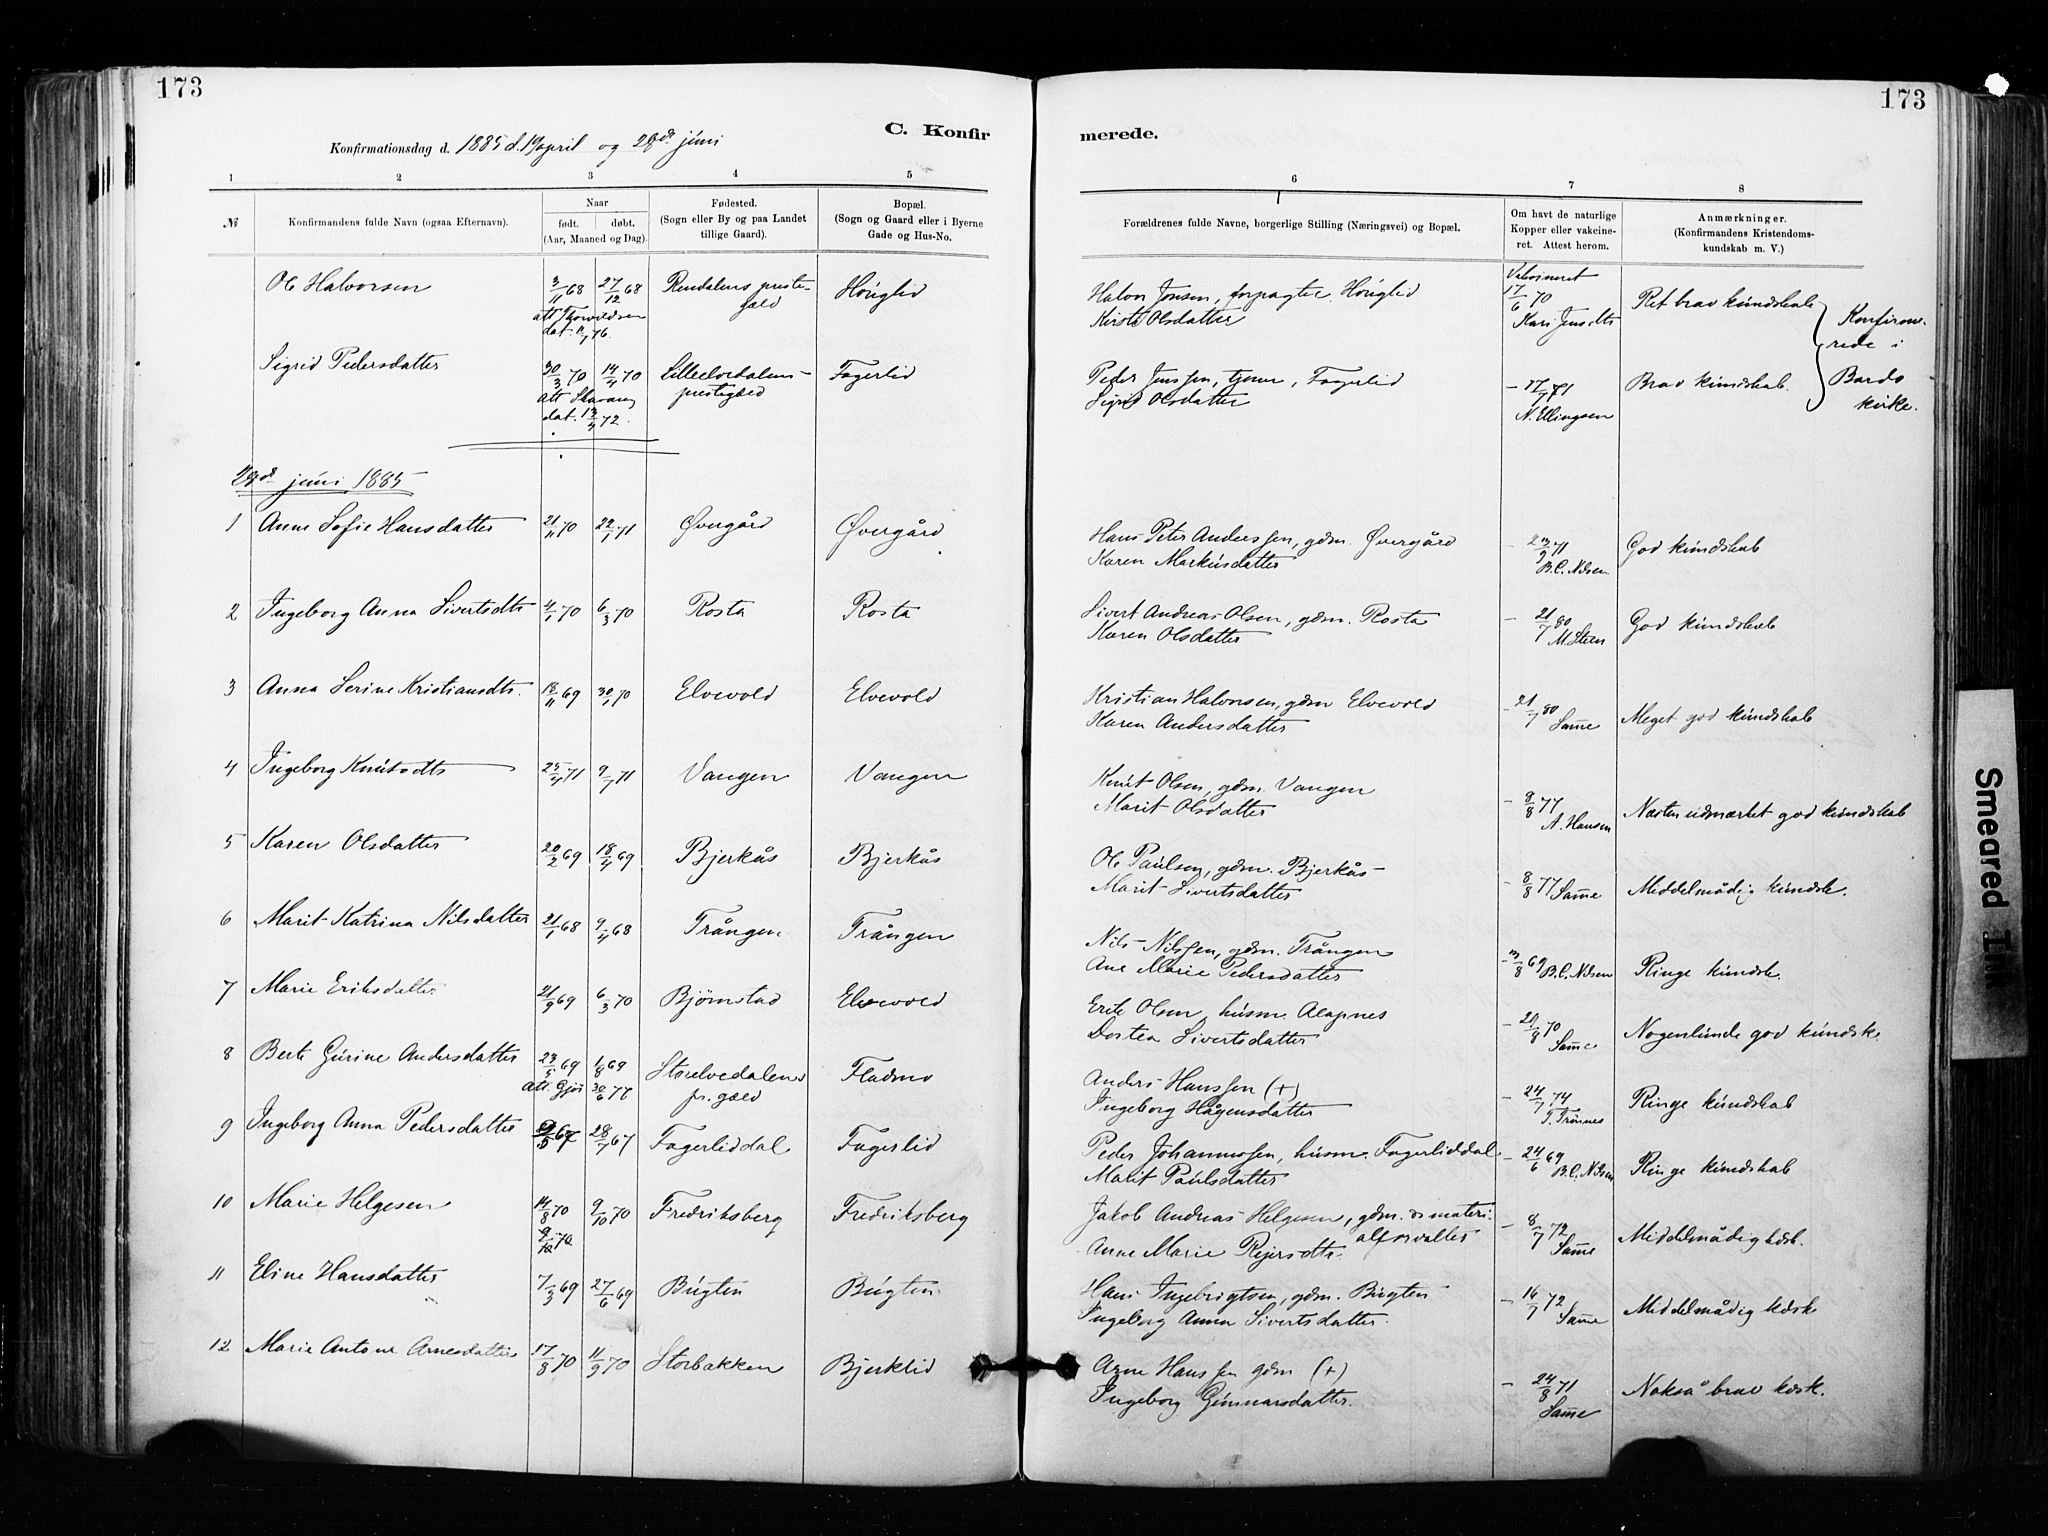 173
173
C. Konfir
merede.
Konfirmationsdag d. 1885 d. 19 april og 28de juni
1 2 3 4 5 6 7 8
№ Konfirmandens fulde Navn (ogsaa Efternavn).
Naar født. døbt. (Aar, Maaned og Dag).
Fødested. (Sogn eller By og paa Landet tillige Gaard).
Bopæl. (Sogn og Gaard eller i Byerne Gade og Hus-No.
Forældrenes fulde Navne, borgerlige Stilling (Næringsvei) og Bopæl.
Om havt de naturlige Kopper eller vakcineret. Attest herom.
Anmærkninger. (Konfirmandens Kristendomskundskab m. V.)
Ole Halvorsen 3/11 68 27/12 68 Rendalens preste- Houglid Halvor Jonsen, forpagter, Houglid Vakcineret 17/6 70 Ret brav kundskab
att Thorvildsen gæld Kirsti Olsdatter Kari Jensdtr
dat. 11/7 76.
Sigrid Pedersdatter 30/3 70 14/4 70 Lilleelvedalens Fagerlid Peder Jenssen, tjener, Fagerlid - 17/7 71 Brav kundskab.
att prestegæld Sigrid Olsdatter N. Ellingsen
dat. 13/4 72.
Konfirme-
rede i
Bardo
kirke.
28de juni 1885
1 Anne Sofie Hansdatter 21/11 70 22/1 71 Øvergård Øvergård Hans Peter Anderssen, gdm. Øvergård - 23/9 71 God kundskab
Karen Markusdatter B.C. Nilsen
2 Ingeborg Anna Sivertsdtr 4/1 70 6/3 70 Rosta Rosta Sivert Andreas Olsen, gdm. Rosta - 21/7 80 God kundskab
Karen Olsdatter M. Steen
3 Anna Serine Kristiansdtr. 18/11 69 30/1 70 Elvevold Elvevold Kristian Halvorsen, gdm Elvevold - 21/7 80 Meget god kundskab
Karen Andersdatter Samme
4 Ingeborg Knutsdtr 25/4 71 9/7 71 Vangen Vangen Knut Olsen, gdm. Vangen - 8/8 77 Næsten udmærket god kundskab
Marit Olsdatter A. Hansen
5 Karen Olsdatter 20/2 69 18/4 69 Bjerkås Bjerkås Ole Paulsen, gdm. Bjerkås - 8/8 77 Samme Middelmådig kundsk.
Marit Sivertsdatter
6 Marit Katrina Nilsdatter 21/1 68 9/4 68 Trången Trången Nils Nilssen, gdm. Trången - 13/8 69 B.C. Nilsen Ringe kundsk.
Ane Marie Pedersdatter
7 Marie Eriksdatter 21/9 69 6/3 70 Bjørnstad Elvevold Erik Olsen, husm. Alapnes - 20/8 70 Nogenlunde god kundsk.
Dortea Sivertsdatter Samme
8 Berte Gurine Andersdatter 23/5 69 1/8 69 Storelvedalens Fladmo Anders Hanssen (+) - 24/7 74 Ringe kundskab
att. 30/6 77 pr. gæld Ingeborg Hågensdatter T. Trønnes
9 Ingeborg Anna Pedersdatter 28/7 67 Fagerliddal Fagerlid Peder Johannessen, husm. Fagerliddal - 24/6 69 Ringe kundskab
Marit Paulsdatter B.C. Nilsen
10 Marie Helgesen 14/8 70 9/10 70 Fredriksberg Fredriksberg Jakob Andreas Helgesen, gdm. & materi- - 8/7 72 Middelmådig kdsk.
9/10 70 alforvalter
Anne Marie Rejersdtr. Samme
11 Eline Hansdatter 7/3 69 27/6 69 Bugten Bugten Hans Ingebrigtsen, gdm. Bugten - 16/7 72 Middelmådig kdsk
Ingeborg Anna Sivertsdatter. Samme
12 Marie Antone Arnesdatter 17/8 70 11/9 70 Storbakken Bjerklid Arne Hanssen gdm (+) - 24/8 71 Nokså brav kdsk.
Ingeborg Gunnarsdatter. Samme
Smeared Ink